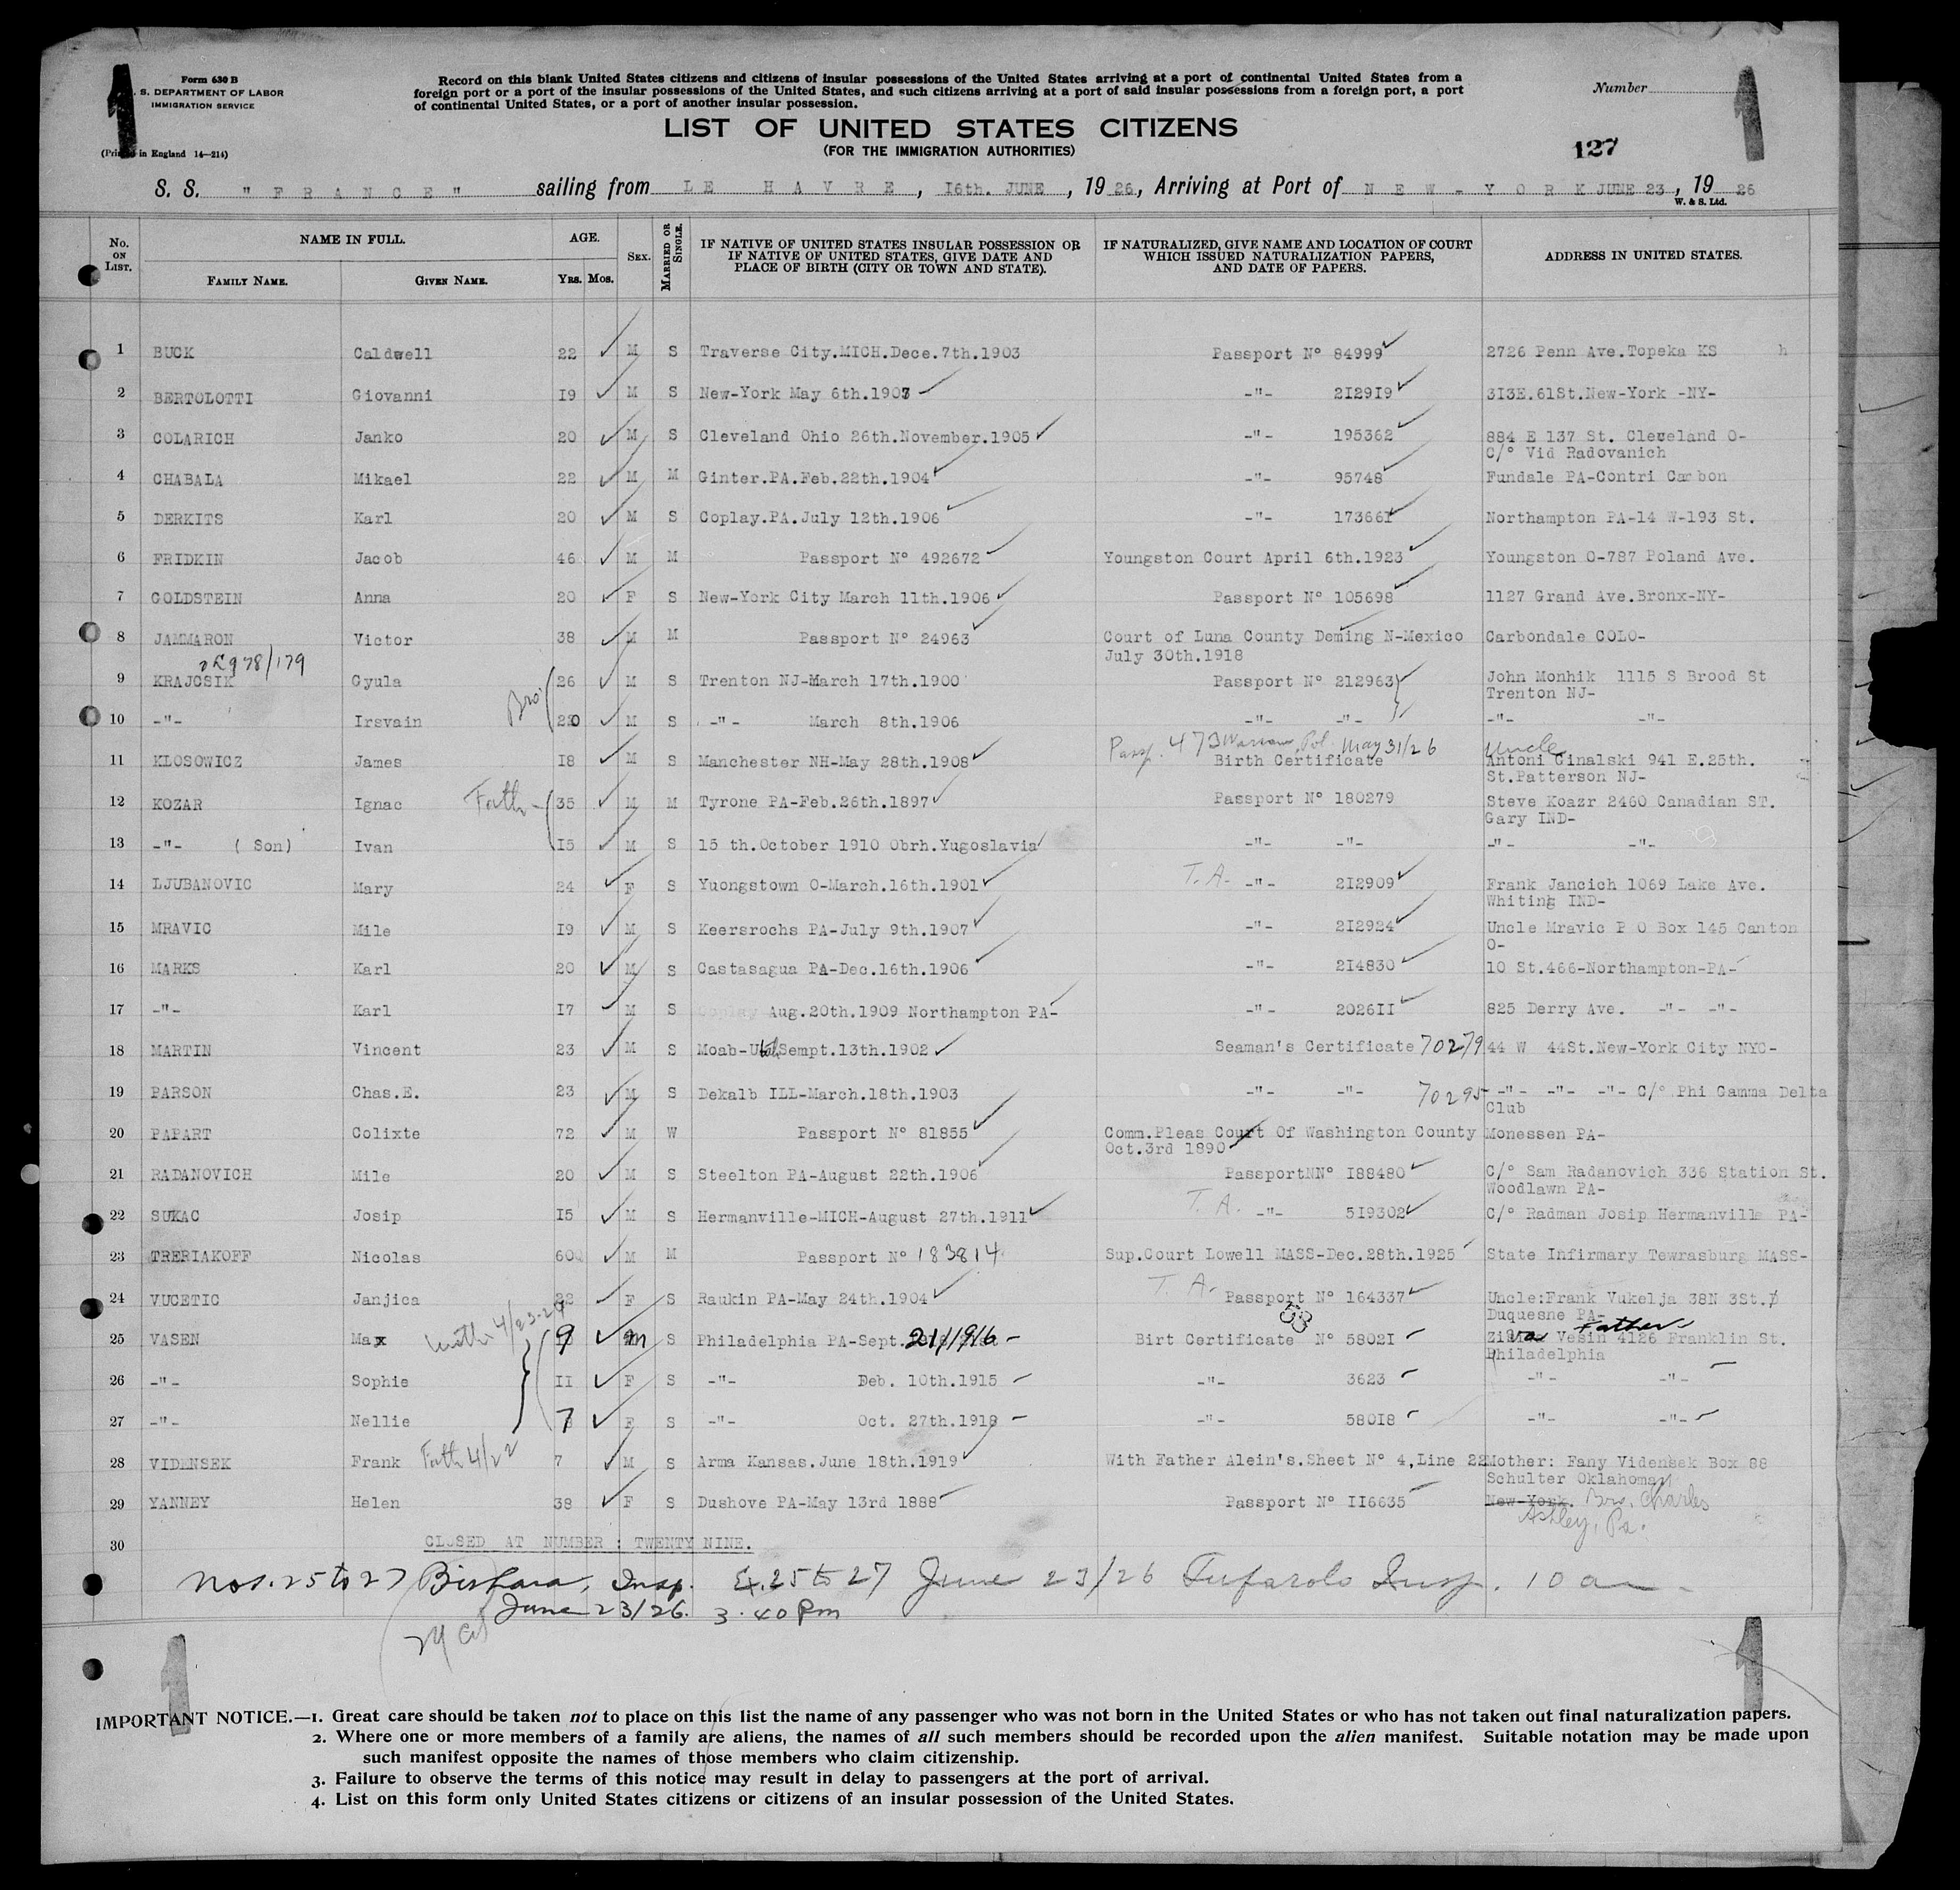 Form 630 B
S. DEPARTMENT OF LABOR
IMMIGRATION SERVICE
in England 14—214)
Record on this blank United States citizens and citizens of insular possessions of the United States arriving at a port of continental United States from a
foreign port or a port of the insular possessions of the United States, and such citizens arriving at a port of said insular possessions from a foreign port, a port
of continental United States, or a port of another insular possession.
Number
LIST OF UNITED STATES CITIZENS
(FOR THE IMMIGRATION AUTHORITIES)
127
S. S. "FRANCE" sailing from LE HAVRE, I6th. JUNE, 19 26, Arriving at Port of NEW-YORK JUNE 23, 19 26
W. & S. Ltd.
No. ON LIST. NAME IN FULL. FAMILY NAME. GIVEN NAME. AGE. YRS. MOS. SEX. MARRIED OR SINGLE.
IF NATIVE OF UNITED STATES INSULAR POSSESSION OR IF NATIVE OF UNITED STATES, GIVE DATE AND PLACE OF BIRTH (CITY OR TOWN AND STATE).
IF NATURALIZED, GIVE NAME AND LOCATION OF COURT WHICH ISSUED NATURALIZATION PAPERS, AND DATE OF PAPERS.
ADDRESS IN UNITED STATES.
1 BUCK Caldwell 22 M S Traverse City.MICH.Dece.7th.1903 Passport N° 84999 2726 Penn Ave.Topeka KS h
2 BERTOLOTTI Giovanni I9 M S New-York May 6th.1907 -"- 2I29I9 3I3E.61St.New-York -NY-
3 COLARICH Janko 20 M S Cleveland Ohio 26th.November.1905 -"- 195362 884 E 137 St. Cleveland O-
C/° Vid Radovanich
4 CHABALA Mikael 22 M M Ginter.PA.Feb.22th.1904 -"- 95748 Fundale PA-Contri Carbon
5 DERKITS Karl 20 M S Coplay.PA.July 12th.1906 -"- 17366I Northampton PA-14 W-193 St.
6 FRIDKIN Jacob 46 M M Passport N° 492672 Youngston Court April 6th.1923 Youngston O-787 Poland Ave.
7 GOLDSTEIN Anna 20 F S New-York City March 11th.1906 Passport N° 105698 1127 Grand Ave.Bronx-NY-
8 JAMMARON Victor 38 M M Passport N° 24963 Court of Luna County Deming N-Mexico Carbondale COLO-
July 30th.1918
978/179
9 KRAJCSIK Gyula 26 M S Trenton NJ-March 17th.1900 Passport N° 212963 John Monhik 1115 S Brood St
Trenton NJ-
Bro
10 -"- Irsvain 20 M S -"- March 8th.1906 -"- -"- -"- -"-
Pass. 473 Warsaw, Pol. May 31/26 Uncle
11 KLOSOWICZ James I8 M S Manchester NH-May 28th.1908 Birth Certificate Antoni Cinalski 941 E.25th.
St.Patterson NJ-
12 KOZAR Ignac Fath- 35 M M Tyrone PA-Feb.26th.1897 Passport N° 180279 Steve Koazr 2460 Canadian ST.
Gary IND-
13 -"- ( Son) Ivan I5 M S 15 th.October 1910 Obrh.Yugoslavia -"- -"- -"- -"-
14 LJUBANOVIC Mary 24 F S Yuongstown O-March.16th.1901 T.A. -"- 2I2909 Frank Jancich 1069 Lake Ave.
Whiting IND-
15 MRAVIC Mile I9 M S Keersrochs PA-July 9th.1907 -"- 2I2924 Uncle Mravic P O Box 145 Canton
O-
16 MARKS Karl 20 M S Castasagua PA-Dec.16th.1906 -"- 214830 10 St.466-Northampton-PA-
17 -"- Karl I7 M S Coplay Aug.20th.1909 Northampton PA- -"- 2026II 825 Derry Ave. -"- -"-
18 MARTIN Vincent 23 M S Moab-Utah Sempt.13th.1902 Seaman's Certificate 70279 44 W 44St.New-York City NYC-
19 PARSON Chas.E. 23 M S Dekalb ILL-March.18th.1903 -"- -"- 70295 -"- -"- -"- C/° Phi Gamma Delta
Club
20 PAPART Colixte 72 M W Passport N° 81855 Comm.Pleas Court Of Washington County Monessen PA-
Oct.3rd 1890
21 RADANOVICH Mile 20 M S Steelton PA-August 22th.1906 PassportNN° I88480 C/° Sam Radanovich 336 Station St.
Woodlawn PA-
22 SUKAC Josip I5 M S Hermanville-MICH-August 27th.1911 T.A. -"- 5I9302 C/° Radman Josip Hermanville PA-
23 TRERIAKOFF Nicolas 60 M M Passport N° 183814 Sup.Court Lowell MASS-Dec.28th.1925 State Infirmary Tewrasburg MASS-
24 VUCETIC Janjica 22 F S Raukin PA-May 24th.1904 T.A. Passport N° 164337 Uncle:Frank Vukelja 38N 3St.
Duquesne PA-
Father
25 VASEN Max 9 M S Philadelphia PA-Sept. 21/1916 - Birt Certificate N° 5802I Vesin 4126 Franklin St.
Philadelphia
26 -"- Sophie II F S -"- Feb. 10th.1915 -"- 3623 -"- -"-
27 -"- Nellie 7 F S -"- Oct. 27th.1918 -"- 580I8 -"- -"-
28 VIDENSEK Frank Fath 4/22 7 M S Arma Kansas.June 18th.1919 With Father Alein's.Sheet N° 4,Line 22 Mother: Fany Vidensek Box 88
Schulter Oklahoma
29 YANNEY Helen 38 F S Dushove PA-May 13rd 1888 Passport N° II6635 New-York. Bro. Charles
Ashley, Pa.
30 CLOSED AT NUMBER : TWENTY NINE.
Nos. 25 to 27 Bishara, Insp. Ex. 25 to 27 June 23/26 Tufarolo Insp. 10 am
June 23/26. 3.40 Pm
IMPORTANT NOTICE.—1. Great care should be taken not to place on this list the name of any passenger who was not born in the United States or who has not taken out final naturalization papers.
2. Where one or more members of a family are aliens, the names of all such members should be recorded upon the alien manifest. Suitable notation may be made upon
such manifest opposite the names of those members who claim citizenship.
3. Failure to observe the terms of this notice may result in delay to passengers at the port of arrival.
4. List on this form only United States citizens or citizens of an insular possession of the United States.